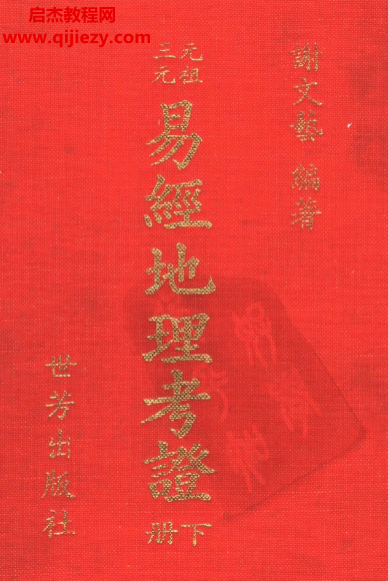 启杰教网
www.qijiezy.com
謝文藝 編著
元祖
三元
易經地理考證
下册
世芳出版社